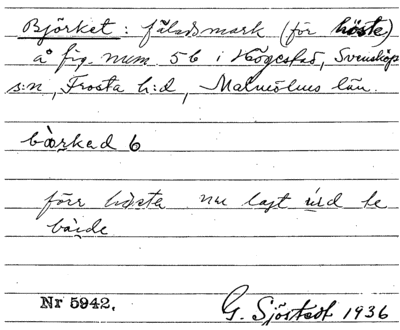 Björket: fäladsmark (för höste)
å fig. num 56 i Högestad, Svensköp
s:n, Frosta h:d, Malmöhus län.
6
förr nu lagt te
Nr 5942.
G. Sjöstedt 1936